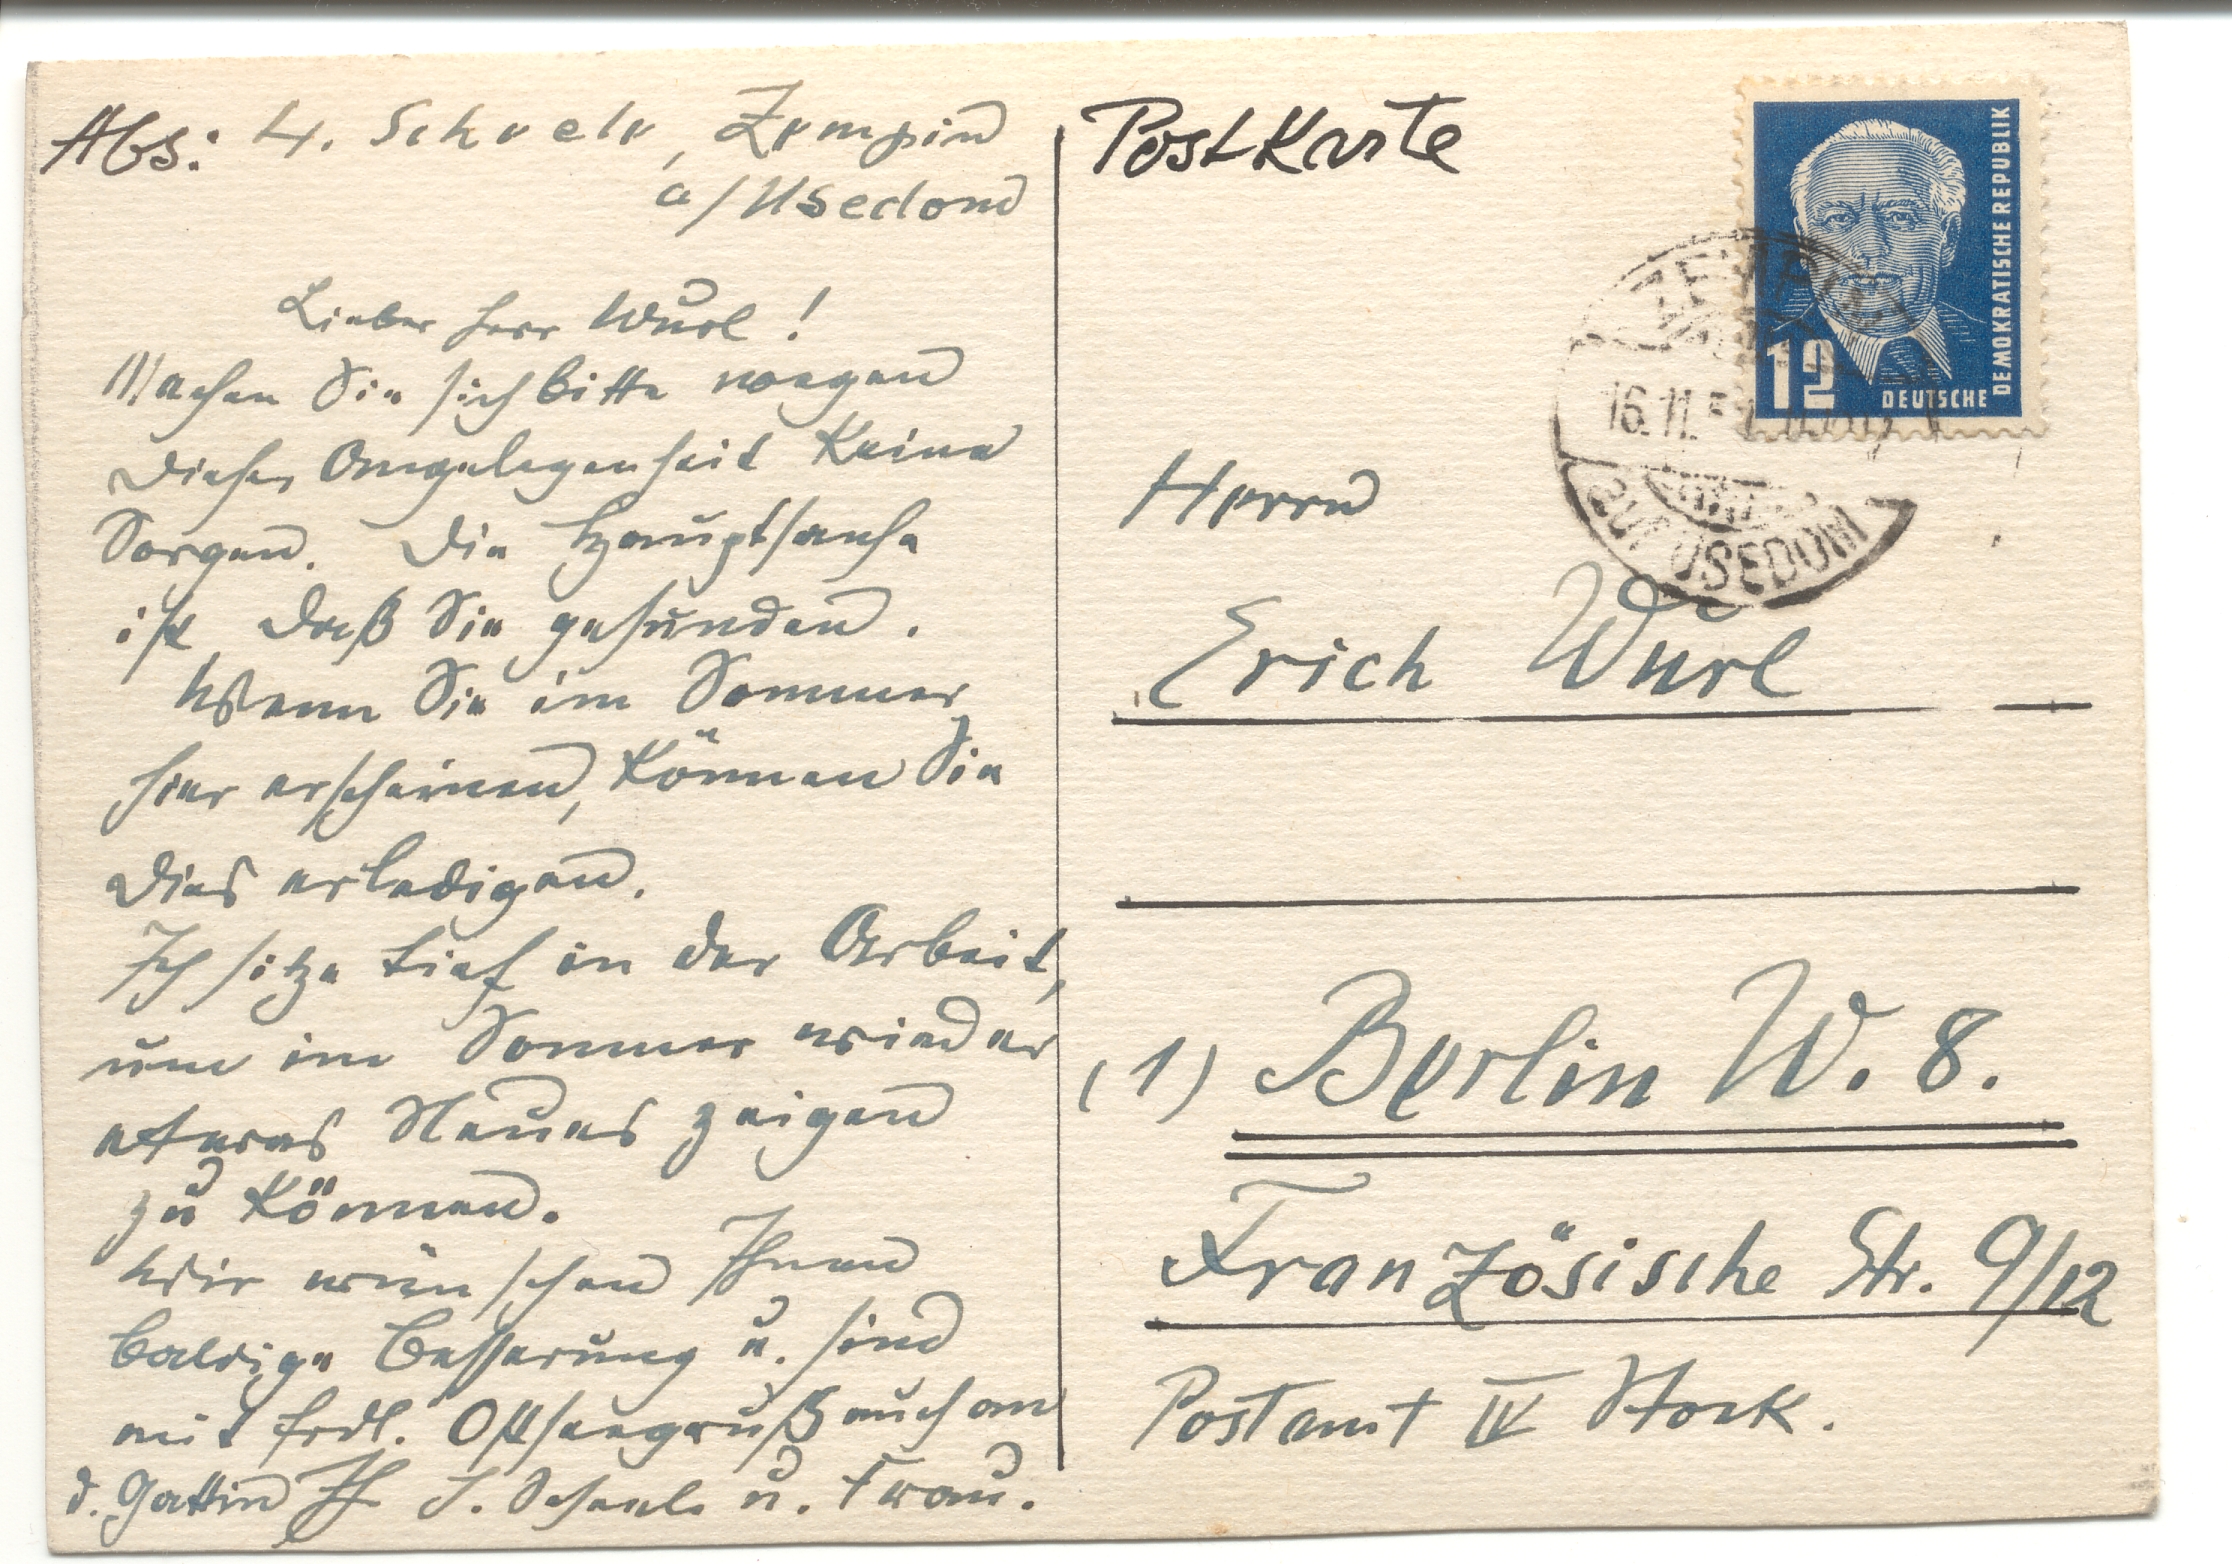 Abs: H. Scheele, Zempin
a/Usedom
Lieber Herr Wurl!
Machen Sie sich bitte wegen
dieser Angelegenheit Keine
Sorgen. Die Hauptsache
ist, daß Sie gesunden.
Wenn Sie im Sommer
hier erscheinen, Können Sie
dies erledigen.
Ich sitze tief in der Arbeit,
um im Sommer wieder
etwas Neues zeigen
zu Können.
Wir wünschen Ihnen
baldige Besserung u. sind
mit frdl. Ostseegruß auch an
d. Gattin Ih u. Frau.
PostKarte
DEUTSCHE DEMOKRATISCHE REPUBLIK
12
ZEMPIN
16.11.5
AUF USEDOM
Herrn
Erich Wurl
(1) Berlin W. 8.
Französische Str. 9/12
Postamt IV Stock.